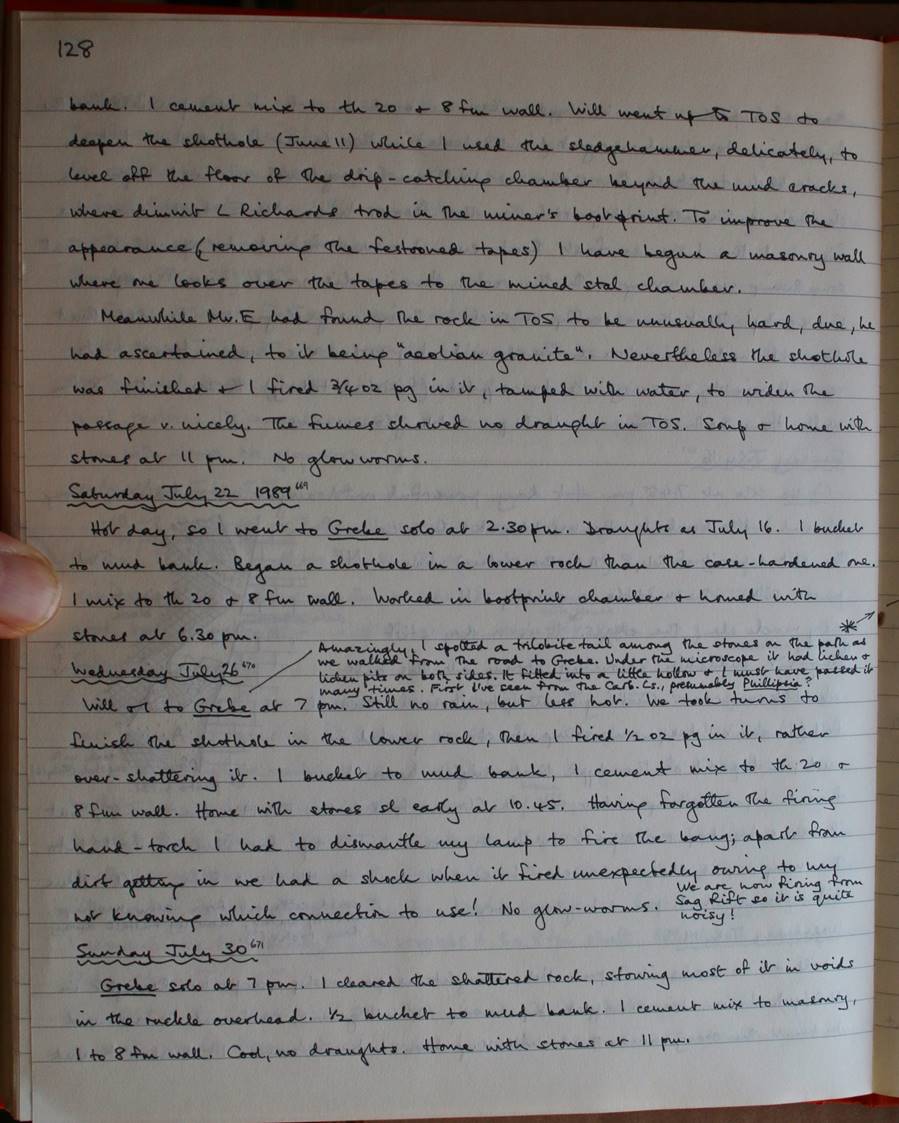 128
bank. 1 cement mix to th 20 & 8 fm wall. Will went up to TOS to
deepen the shothole (June 11) while I used the sledgehammer, delicately, to
level off the floor of the drip-catching chamber beyond the mud cracks,
where dimwit L Richards trod in the miner's bootprint. To improve the
appearance (removing the festooned tapes) I have begun a masonry wall
where one looks over the tapes to the mined stal chamber.
Meanwhile Mr. E had found the rock in TOS to be unusually hard, due, he
had ascertained, to it being "aeolian granite". Nevertheless the shothole
was finished & I fired 3/4 oz pg in it, tamped with water, to widen the
passage v. nicely. The fumes showed no draught in TOS. Soup & home with
stones at 11 pm. No glow worms.
Saturday July 22 1989 669
Hot day, so I went to Grebe solo at 2.30 pm. Draughts as July 16. 1 bucket
to mud bank. Began a shothole in a lower rock than the case-hardened one.
1 mix to th 20 & 8 fm wall. Worked in bootprint chamber & homed with
stones at 6.30 pm.
Amazingly, I spotted a trilobite tail among the stones on the path as
we walked from the road to Grebe. Under the microscope it had lichen &
lichen pits on both sides. It fitted into a little hollow & I must have passed it
many times. First I've seen from the Carb. Ls., presumably Phillipsia?
Wednesday July 26 670
Will & I to Grebe at 7 pm. Still no rain, but less hot. We took turns to
finish the shothole in the lower rock, then I fired 1/2 oz pg in it, rather
over-shattering it. 1 bucket to mud bank, 1 cement mix to th 20 &
8 fm wall. Home with stones sl early at 10.45. Having forgotten the firing
hand-torch I had to dismantle my lamp to fire the bang; apart from
dirt getting in we had a shock when it fired unexpectedly owing to my
not knowing which connection to use! No glow-worms.
We are now firing from
Sag Rift so it is quite
noisy!
Sunday July 30 671
Grebe solo at 7 pm. I cleared the shattered rock, stowing most of it in voids
in the ruckle overhead. 1/2 bucket to mud bank. 1 cement mix to masonry,
1 to 8 fm wall. Cool, no draughts. Home with stones at 11 pm.